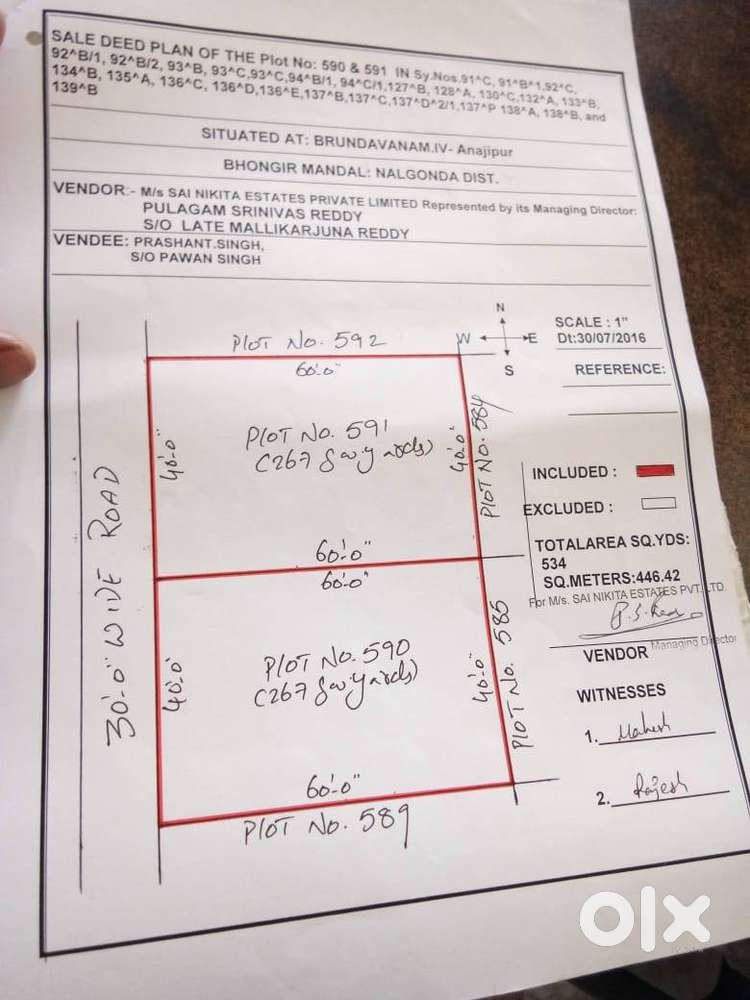 SALE DEED PLAN OF THE Plot No: 590 & 591 IN Sy.Nos.91^C, 91^B^1,92^C,
92^B/1, 92^B/2, 93^B, 93^C,93^C,94^B/1, 94^C/1,127^B, 128^A, 130^C,132^A, 133^B,
134^B, 135^A, 136^C, 136^D,136^E,137^B,137^C,137^D^2/1,137^P 138^A, 138^B, and
139^B
SITUATED AT: BRUNDAVANAM.IV- Anajipur
BHONGIR MANDAL: NALGONDA DIST.
VENDOR:- M/s SAI NIKITA ESTATES PRIVATE LIMITED Represented by its Managing Director:
PULAGAM SRINIVAS REDDY
S/O LATE MALLIKARJUNA REDDY
VENDEE: PRASHANT.SINGH,
S/O PAWAN SINGH
N
W E
S
SCALE : 1"
Dt:30/07/2016
REFERENCE:
PLOT No. 592
60'-0"
40'-0"
PLOT No. 591
(267 Sq.yards)
40'-0"
PLOT No. 584
60'-0"
30'-0" WIDE ROAD
60'-0"
40'-0"
PLOT No. 590
(267 Sq.yards)
40'-0"
PLOT No. 585
60'-0"
PLOT No. 589
INCLUDED :
EXCLUDED :
TOTALAREA SQ.YDS:
534
SQ.METERS:446.42
For M/s. SAI NIKITA ESTATES PVT. LTD.
Managing Director
VENDOR
WITNESSES
1. Mahesh
2. Rajesh
olx